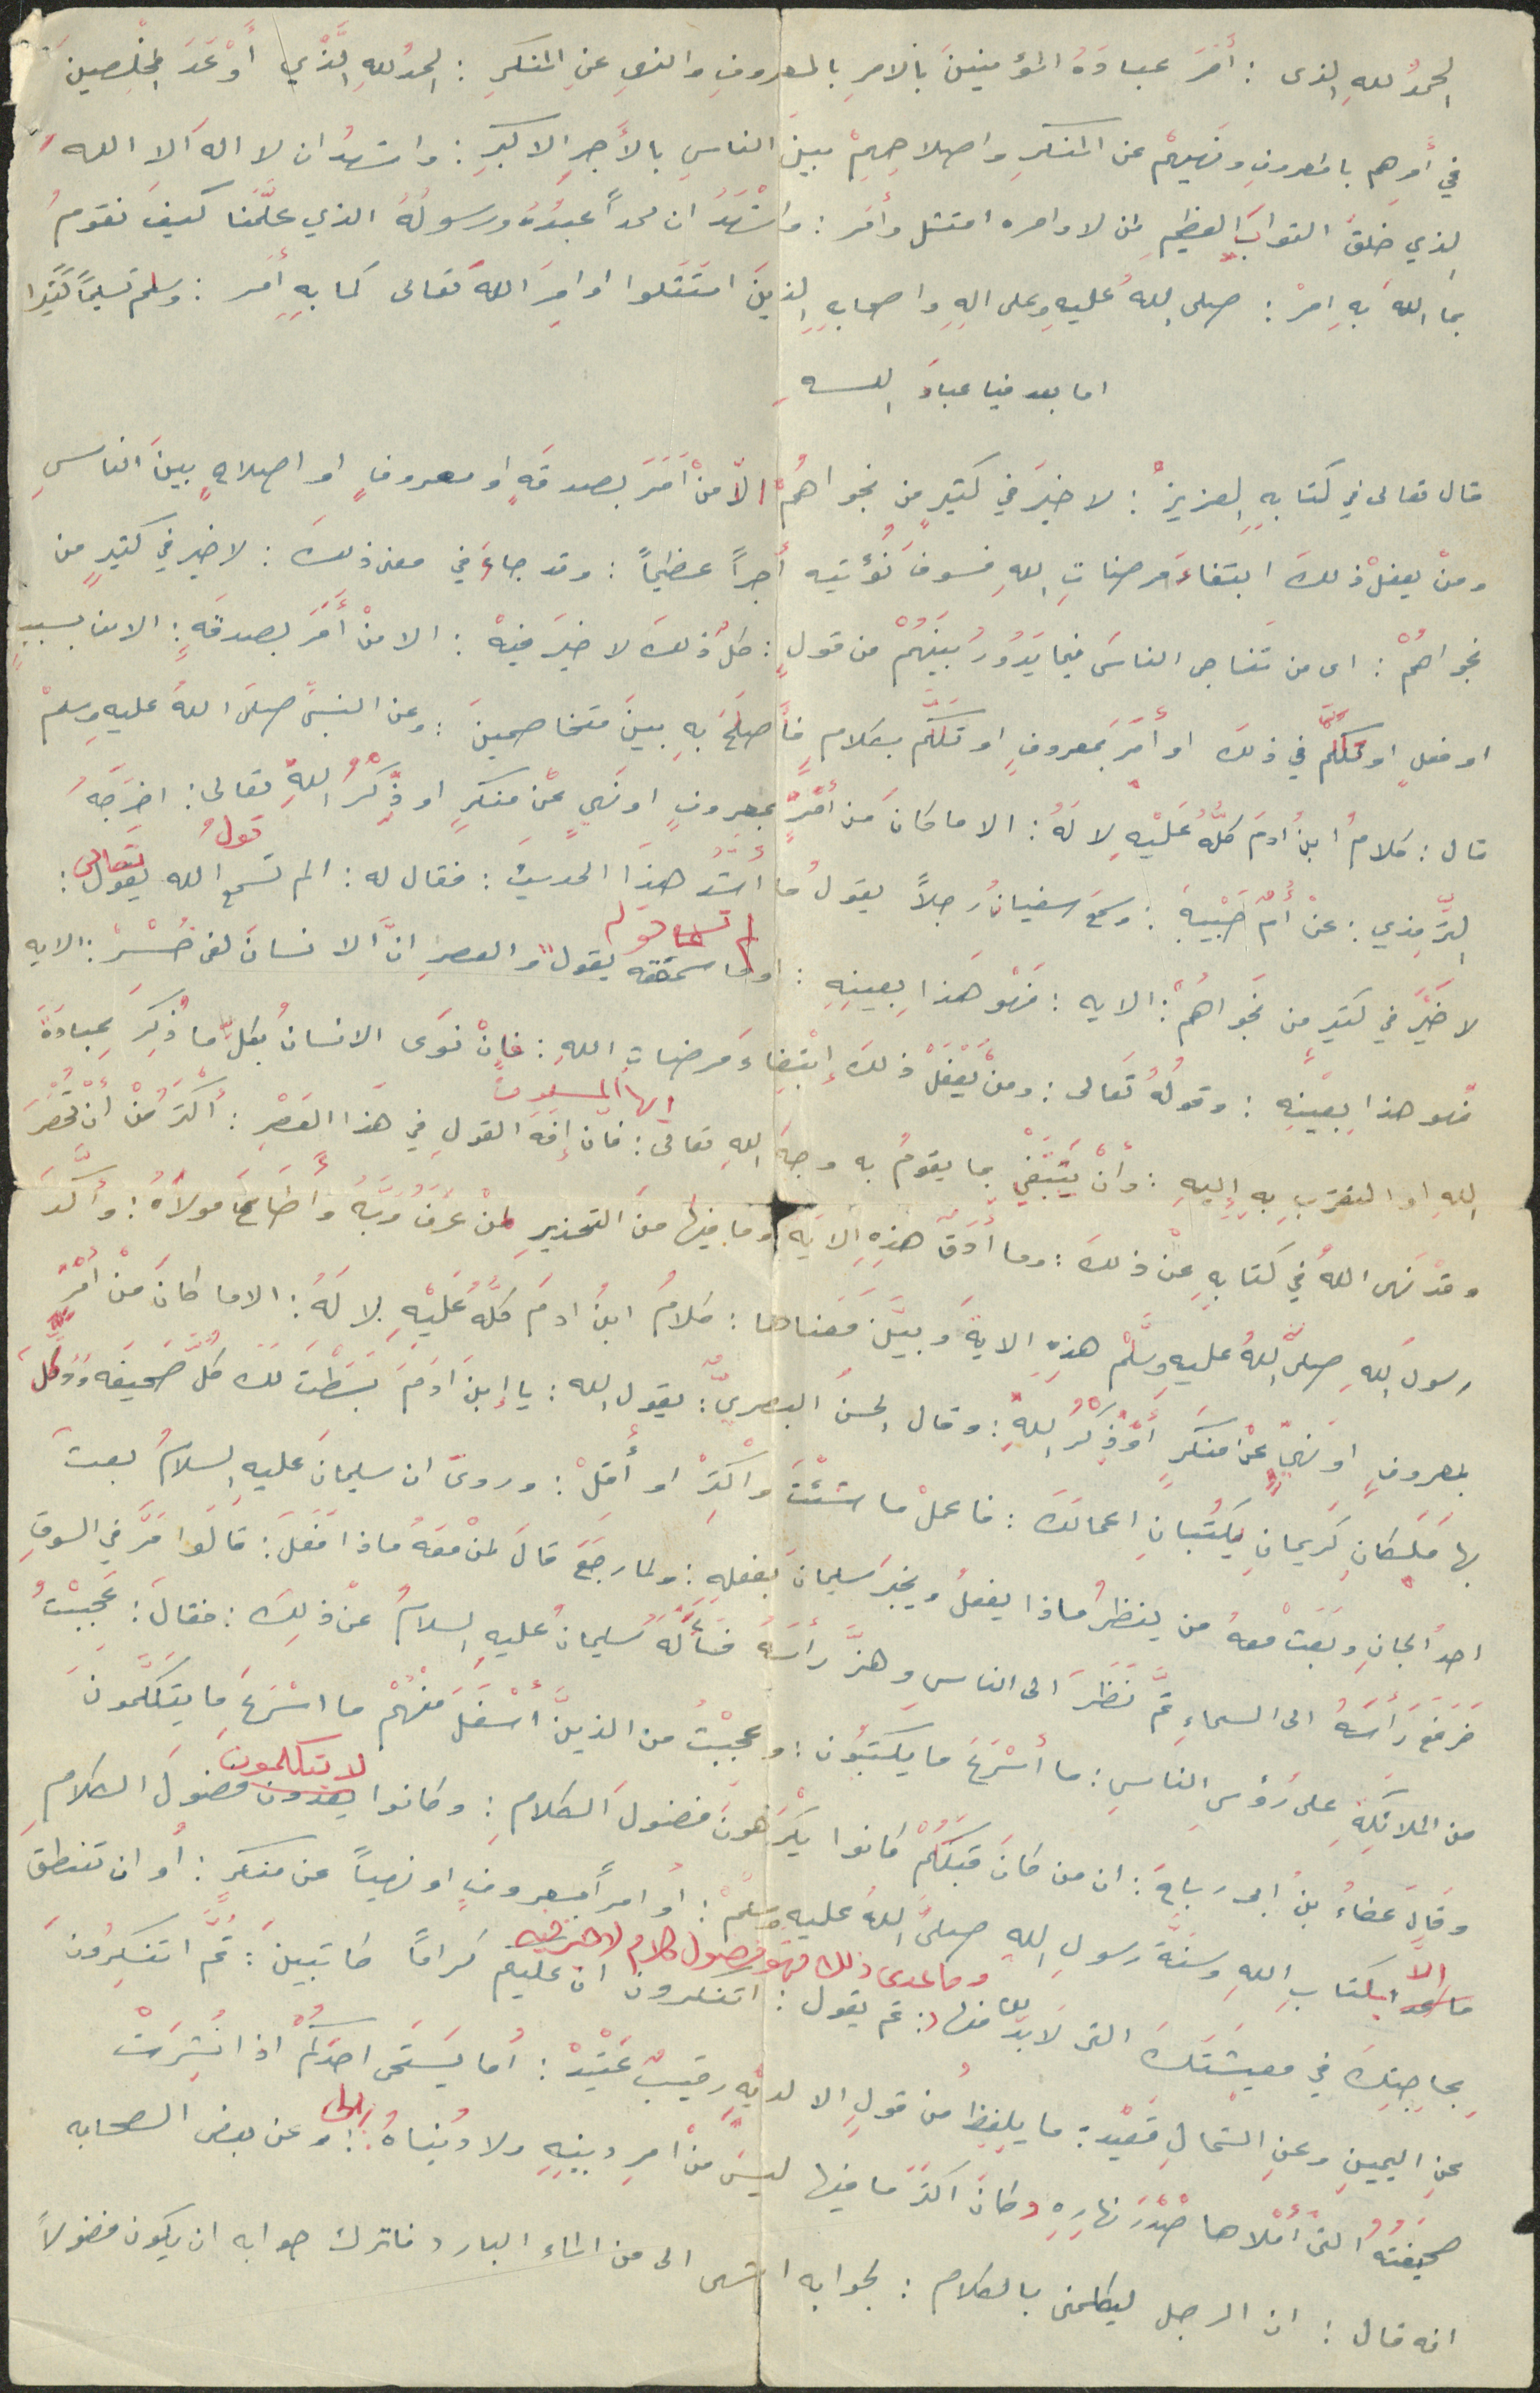 الحمدُ للهِ الذى : أَمَرَ عبادَهُ المؤمنينَ بالامرِ بالمعروفِ والنهىِ عنِ المنكرِ : الحمدُ للهِ الَّذْي أَوْعَدَ المخْلِصينَ
في أَمرِهم بالمعروفِ ونَهيهِمْ عن المنكرِ واصلاحِهِمْ بينَ الناسِ بالأَجرِ الاكبرِ : واشهدُ ان لا اله الا الله
الذي خلقَ الثوابَ العظيمِ لمن لاوامره امتثل وأْمَر : واشْهَدُ ان محمداً عبدُهُ ورسولُهُ الذي علَّمَنا كيفَ نقومُ
بما اللهُ بهِ امرْ : صلى اللهُ عليهِ وعلى الهِ واصحابهِ الذينَ امتَثَلوا اوامِرَ اللهَ تعالى كما بهِ أَمَر : وسلم تسليماً كثيرا
اما بعد فيا عبادَ اللــهِ
قال تعالى في كتابهِ العزيزْ : لا خيرَ في كثيرٍ من نجواهُمْ الاّ منْ أَمَرَ بصدقَهٍ او معروفٍ او اصلاحٍ بينَ الناسِ
ومنْ يفعلْ ذلكَ ابتغاءَ مرضاتِ اللهِ فسوفَ نُؤتيه أَجراً عظيماً : وقد جاءَ في معنى ذلكَ : لا خير في كثيرٍ من
نجواهُمْ : اى من تَناجى الناسَ فيما يَدُورُ بينَهُمْ من قولٍ : كلُ ذلكَ لا خيرَ فيهْ : الا منْ أَمَرَ بصدقَهٍ : الا من بسببٍ
او فعلٍ او تكلَّمَ في ذلكَ او أَمَرَ بمعروفٍ او تكلَّم بكلامٍ فأَصلحَ بهِ بينَ متخاصمينَ : وعن النبىّ صلى اللهُ عليهِ وسلمْ
قال : كلامُ ابنُ ادمَ كلُّهُ عَلَيْهِ لا لَهُ : الا ما كانَ مَن أَمْرٍ بمعروفٍ او نهىٍ عنْ منكرٍ او ذِكْرُ اللهِ تعالى : اخرَجَهُ
الترمذي : عنْ أُمّ حَبْيبةَ : وسمعَ سفيانُ رجلاً يقولُ ما أَشَدَّ هذا الحديث : فقال له : الم تسمعِ الله يقول قولُ تعالى :
لا خَيْرَ في كثيرٍ من نَجواهُمْ : الايه : فَهْوَ هَذا بِعينِهِ : او ما سمعته يقول لم تسمع قوله والعصرِ انَّ الانسانَ لفى خُسْرٍ : الايه
فهو هذا بِعَيْنِهِ : وقولُهُ تعَالى : ومنْ يَفْعَلْ ذلكَ إبْتِغاءَ مَرضاتِ اللهِ : فإنْ نوَى الانسانُ بكلِّ ما ذُكِرَ عِبادَةَ
اللهِ او التقرّبِ بهِ إِليهِ : وأَنْ يَبْتَغْي بما يقومُ به وجهَ اللهِ تعالى : فان إفَهَ القولِ ايها المسلمون في هَذا العَصْرِ : أَكثرُ مْنْ أَنْ تُحْصَرَ
وقدْ نَهى اللهُ في كتابهِ عنْ ذلكَ : وما أَدَقّ هَذِهِ الآيَهِ وما فيها منَ التحذيرِ لمنْ عَرَفَ رَبَّهُ وأَطاعَ مولاهُ : وأَكَّدَ
رسولُ اللهِ صلىّ اللهُ عليهِ وسَلَّمْ هذِهِ الايةَ وبيَّنَ مَعْناها : كلامُ ابنُ ادمَ كلُّهُ عَلَيْهِ لا لَهُ : الا ما كانَ مَنْ أَمْرٍ
بمعروفٍ او نهىٍ عنْ منكَرٍ أَوْ ذِكْرُ اللهِ : وقال الحسنُ البصريُّ : يقول الله : يا إبنَ ادَمَ بَسَطْتُ لكَ كُلَّ صَحيفَه ووَكَّلَ
بها مَلَكانِ كَريمانِ يكتُبانِ اعمالَكَ : فاعملْ ما شئْتَ وأَكثِرْ او أَقلْ : وروىَ ان سليمانَ عليهِ السلامُ بعثَ
احدُ الجانِ وبَعَثَ معهُ من ينظرُ ماذا يفعلُ ويخبرَ سليمانَ بفعلهِ : ولما رجَعَ قالَ لمنْ معَهُ ماذا فَعَلَ : قالَوا مَرَّ في السوقِ
فَرَفَعَ رَأسَهُ الى السماءِ ثمَّ نظرَ الى الناسِ وهزَّ رأسَهُ فسَأَلَهُ سليمانُ عليهِ السلامُ عنْ ذلِكَ : فقالَ : عَجِبْتُ
من الملائكةِ على رُؤسِ الناسِ : ما أَسْرَعَ ما يكتُبُون : وعجبْتُ من الذينَ أَسْفَلَ منهُمْ ما اسْرَعَ ما يتَكلَّمونَ
وقالَ عطاءُ بنُ ابى رباحَ : ان من كانَ قبلَكُمْ كانوا يكْرَهونَ فضولَ الكلامِ : وكانوا يعدون لا يتكلمون فضولَ الكلامِ
ما عدا الاَّ بكتابِ اللهِ وسنَّةَ رسولِ اللهِ صلىَّ اللهُ عليهِ وسلمْ : أو أمراً بمعروفٍ او نهياً عن منكرٍ : أو ان تنطقَ
بحاجتِكَ في معيشَتَكَ التى لا بُدَّ لك منها وما عدى ذلك فهو فضول كلام لا خير فيه : ثم يقول : اتنكرون ان عليكم كراماً كاتبينَ : ثُمَّ اتنكِرُونَ
عنِ اليمينِ وعنِ الشمالِ قَعيْد : ما يلفِظُ منْ قولٍ الا لديْهِ رقيبٌ عَتيْدْ : أَما يَستَحى احدَكُمْ اذا نُشِرَتْ
صحيفَتُهُ التىْ أَمْلاها صْدْرَ نهارِهِ وكانَ اكثرَ ما فيها ليسَ منْ امرِ دينِهِ ولا دُنياهُ : وعن بعض الصحابه
انه قال : ان الرجل ليكلمنى بالكلام : لجوابه اشهى الى من الماء البارد فاترك جوابه ان يكون فضولاً